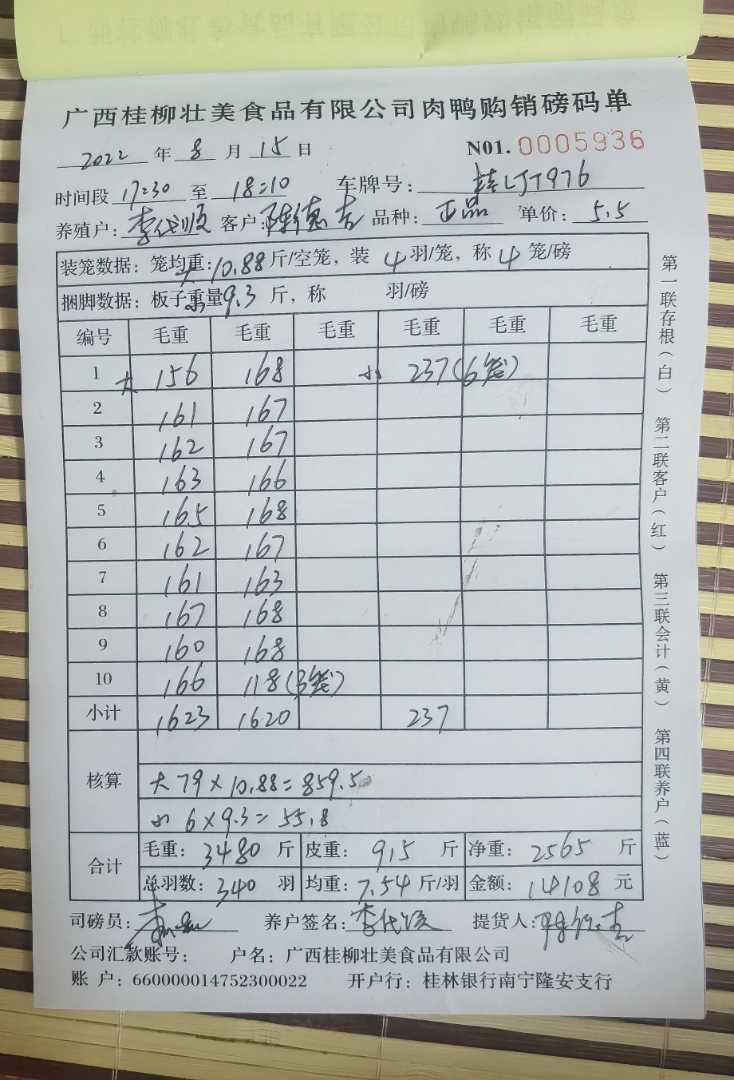 广西桂柳壮美食品有限公司肉鸭购销磅码单
2022 年 8 月 15 日 N01. 0005936
时间段 17:30 至 18:10 车牌号: 桂LJT976
养殖户: 李代顺 客户: 陈德吉 品种: 正品 单价: 5.5
装笼数据: 笼均重: 大10.88 斤/空笼, 装 4 羽/笼, 称 4 笼/磅
捆脚数据: 板子重量 小9.3 斤, 称 羽/磅
编号 毛重 毛重 毛重 毛重 毛重 毛重
1 大 156 168 小 237(6笼)
2 161 167
3 162 167
4 163 166
5 165 168
6 162 167
7 161 163
8 167 168
9 160 168
10 166 118(3笼)
小计 1623 1620 237
核算
大 79×10.88=859.5
小 6×9.3=55.8
合计
毛重: 3480 斤 皮重: 915 斤 净重: 2565 斤
总羽数: 340 羽 均重: 7.54 斤/羽 金额: 14108 元
司磅员: 养户签名: 李代顺 提货人: 陈德吉
公司汇款账号: 户名: 广西桂柳壮美食品有限公司
账 户: 660000014752300022 开户行: 桂林银行南宁隆安支行
第一联存根(白) 第二联客户(红) 第三联会计(黄) 第四联养户(蓝)